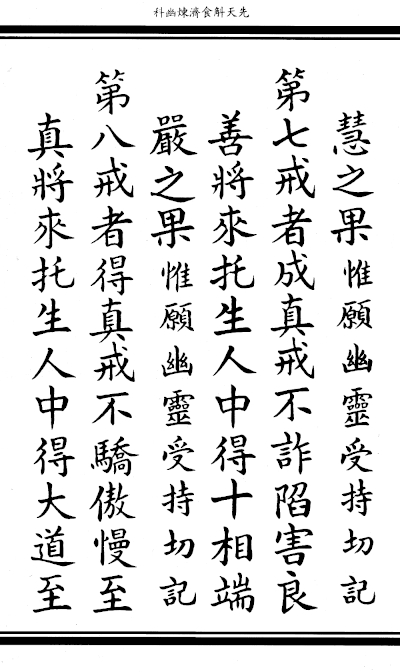 先天斛食濟煉幽科
慧之果惟願幽靈受持切記
第七戒者成真戒不詐陷害良
善將來托生人中得十相端
嚴之果惟願幽靈受持切記
第八戒者得真戒不驕傲慢至
真將來托生人中得大道至